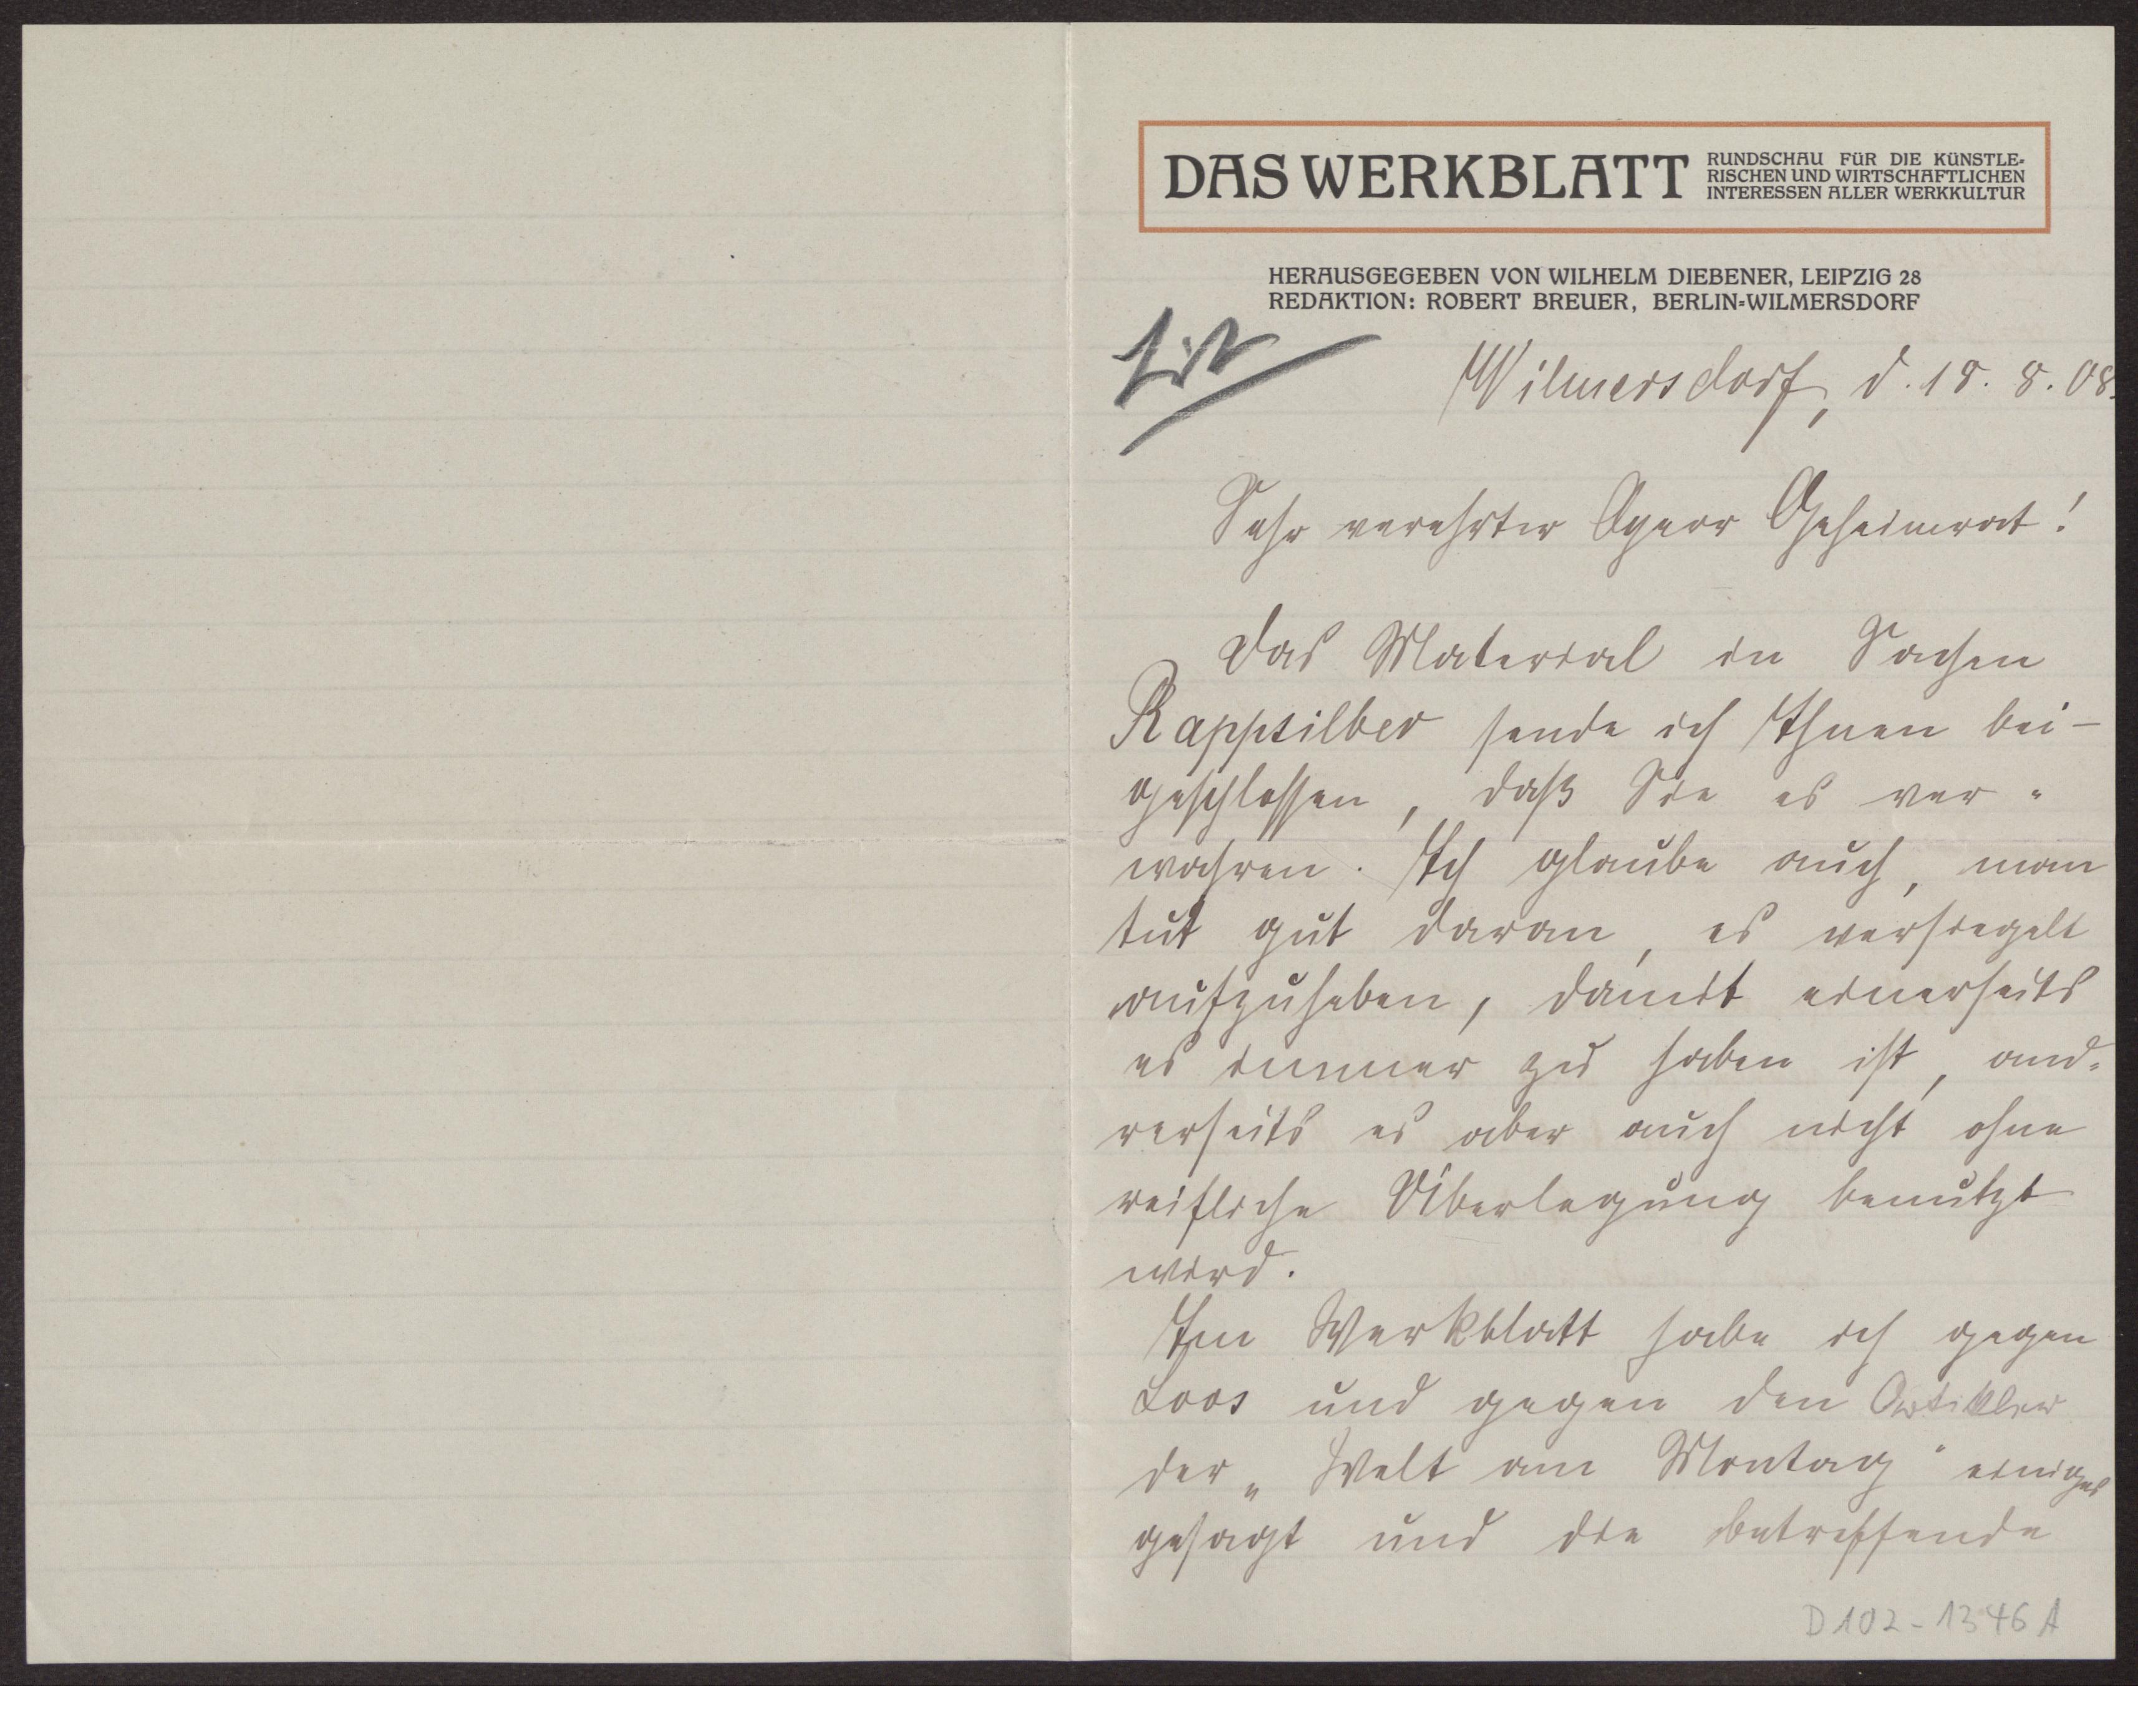 DAS WERKBLATT
RUNDSCHAU FÜR DIE KÜNSTLE-
RISCHEN UND WIRTSCHAFTLICHEN
INTERESSEN ALLER WERKKULTUR
HERAUSGEGEBEN VON WILHELM DIEBENER, LEIPZIG 28
REDAKTION: ROBERT BREUER, BERLIN-WILMERSDORF
Wilmersdorf, d. 18. 8. 08.
Sehr verehrter Herr Geheimrat!
Das Material in Sachen
Rappsilber sende ich Ihnen bei-
geschlossen, daß Sie es ver-
wahren. Ich glaube auch, man
tut gut daran, es versiegelt
aufzuheben, damit einerseits
es immer zu haben ist, and-
rerseits es aber auch nicht ohne
reifliche Überlegung benutzt
wird.
Im Werkblatt habe ich gegen
Loos und gegen den Artikler
der „Welt am Montag" einiges
gesagt und die betreffende
D102-1346A